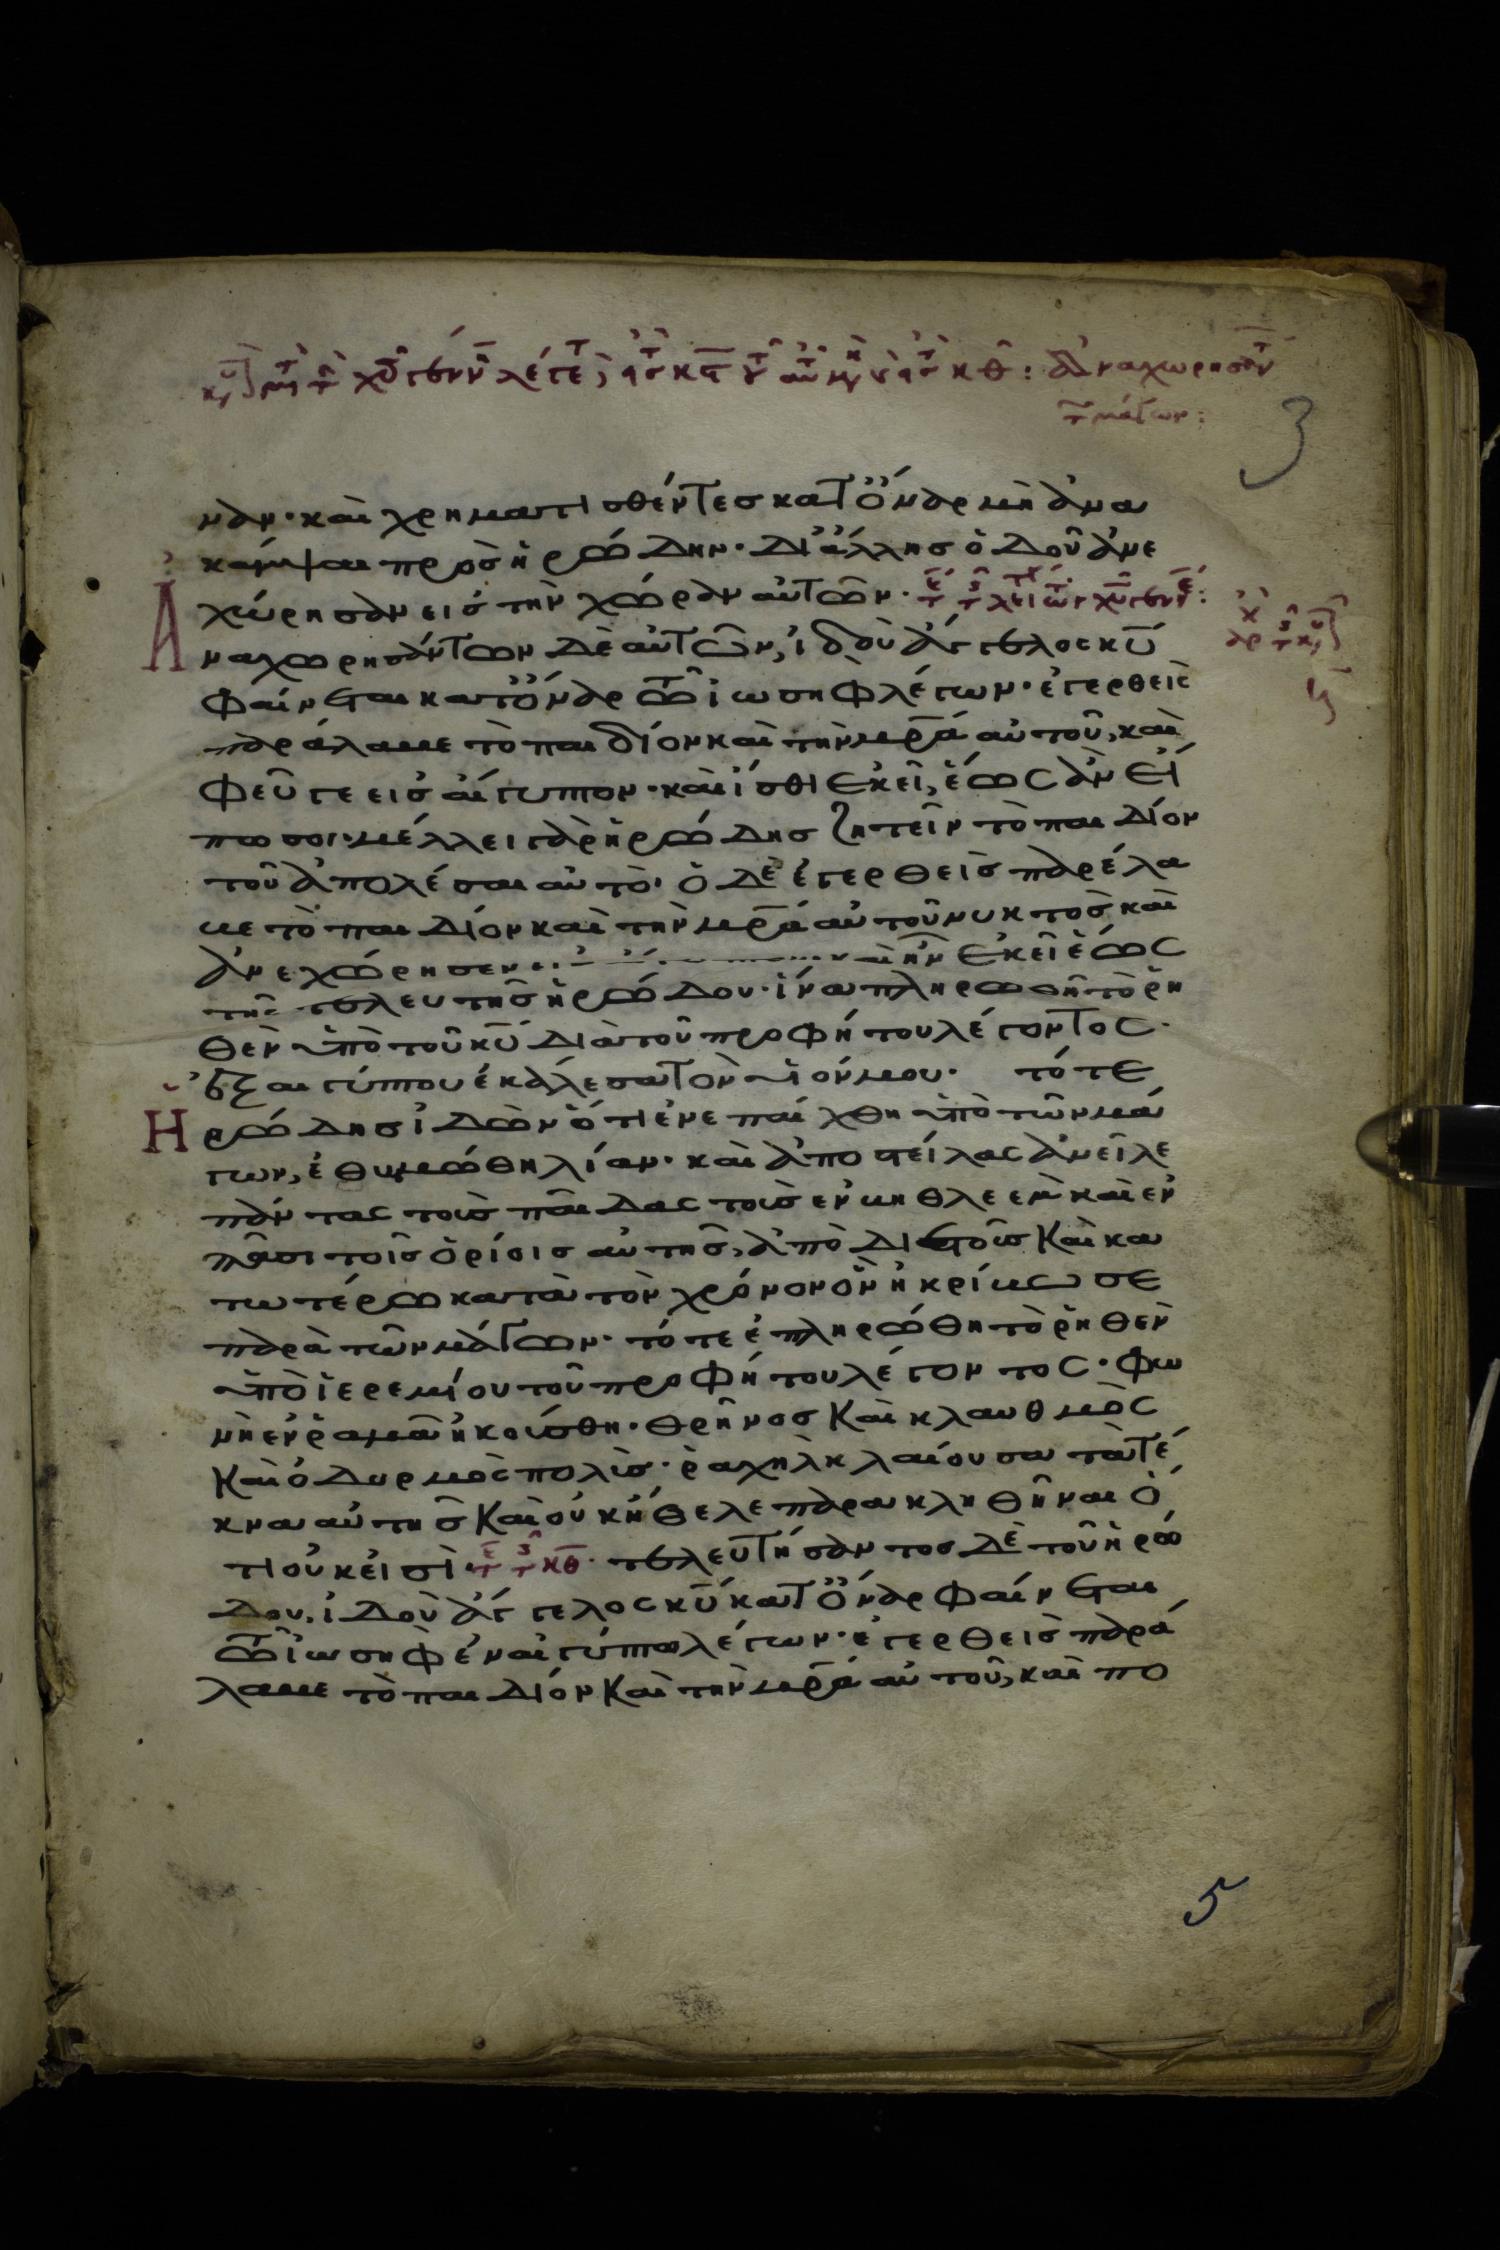 ἀναχωρησάντ
τ μάγων:
3
ναν· καὶ χρηματισθέντες κατ ὄναρ μὴ ἀνα
κάμψαι πρὸς ἡρώδην· δι ἄλλης ὁδοῦ ἀνε
χώρησαν εἰς τὴν χώραν αὐτῶν·
Ἀναχωρησάντων δὲ αὐτῶν, ἰδοὺ ἄγγελος κυ
φαίνεται κατ ὄναρ τῶ ἰωσὴφ λέγων· ἐγερθεὶς
παράλαβε τὸ παιδίον καὶ τὴν μρα αὐτοῦ, καὶ
φεῦγε εἰς αἴγυπτον· καὶ ἴσθι ἐκεῖ, ἕως ἂν εἴ
πω σοι· μέλλει γὰρ ἡρώδης ζητεῖν τὸ παιδίον
τοῦ ἀπολέσαι αὐτό· ὁ δὲ ἐγερθεὶς παρέλα
βε τὸ παιδίον καὶ τὴν μρα αὐτοῦ νυκτὸς καὶ
ἀνεχώρησεν καὶ ἦν ἐκεῖ ἕως
τῆς τελευτῆς ἡρώδου· ἵνα πληρωθῆ τὸ ῥη
θὲν ὑπὸ τοῦ κυ διὰ τοῦ προφήτου λέγοντος·
ἐξ αἰγύπτου ἐκάλεσα τὸν υἱόν μου· τότε
Ἡρώδης ἰδὼν ὅτι ἐνεπαίχθη ὑπὸ τῶν μά
γων, ἐθυμώθη λίαν· καὶ ἀποστείλας ἀνεῖλε
πάντας τοὺς παῖδας τοὺς ἐν βηθλεὲμ καὶ ἐν
πᾶσι τοῖς ὁρίοις αὐτῆς, ἀπὸ διετοῦς καὶ κα
τωτέρω κατὰ τὸν χρόνον ὃν ἠκρίβωσε
παρὰ τῶν μάγων· τότε ἐπληρώθη τὸ ῥηθὲν
ὑπὸ ἱερεμίου τοῦ προφήτου λέγοντος· φω
νὴ ἐν ῥαμᾶ ἠκούσθη· θρῆνος καὶ κλαυθμὸς
καὶ ὀδυρμὸς πολύς· ῥαχὴλ κλαίουσα τὰ τέ
κνα αὐτῆς καὶ οὐκ ἤθελε παρακληθῆναι ὅ
τι οὐκ εἰσί· τελευτήσαντος δὲ τοῦ ἡρώ
δου, ἰδοὺ ἄγγελος κυ κατ ὄναρ φαίνεται
τῶ ἰωσὴφ ἐν αἰγύπτω λέγων· ἐγερθεὶς παρά
λαβε τὸ παιδίον καὶ τὴν μρα αὐτοῦ, καὶ πο
5